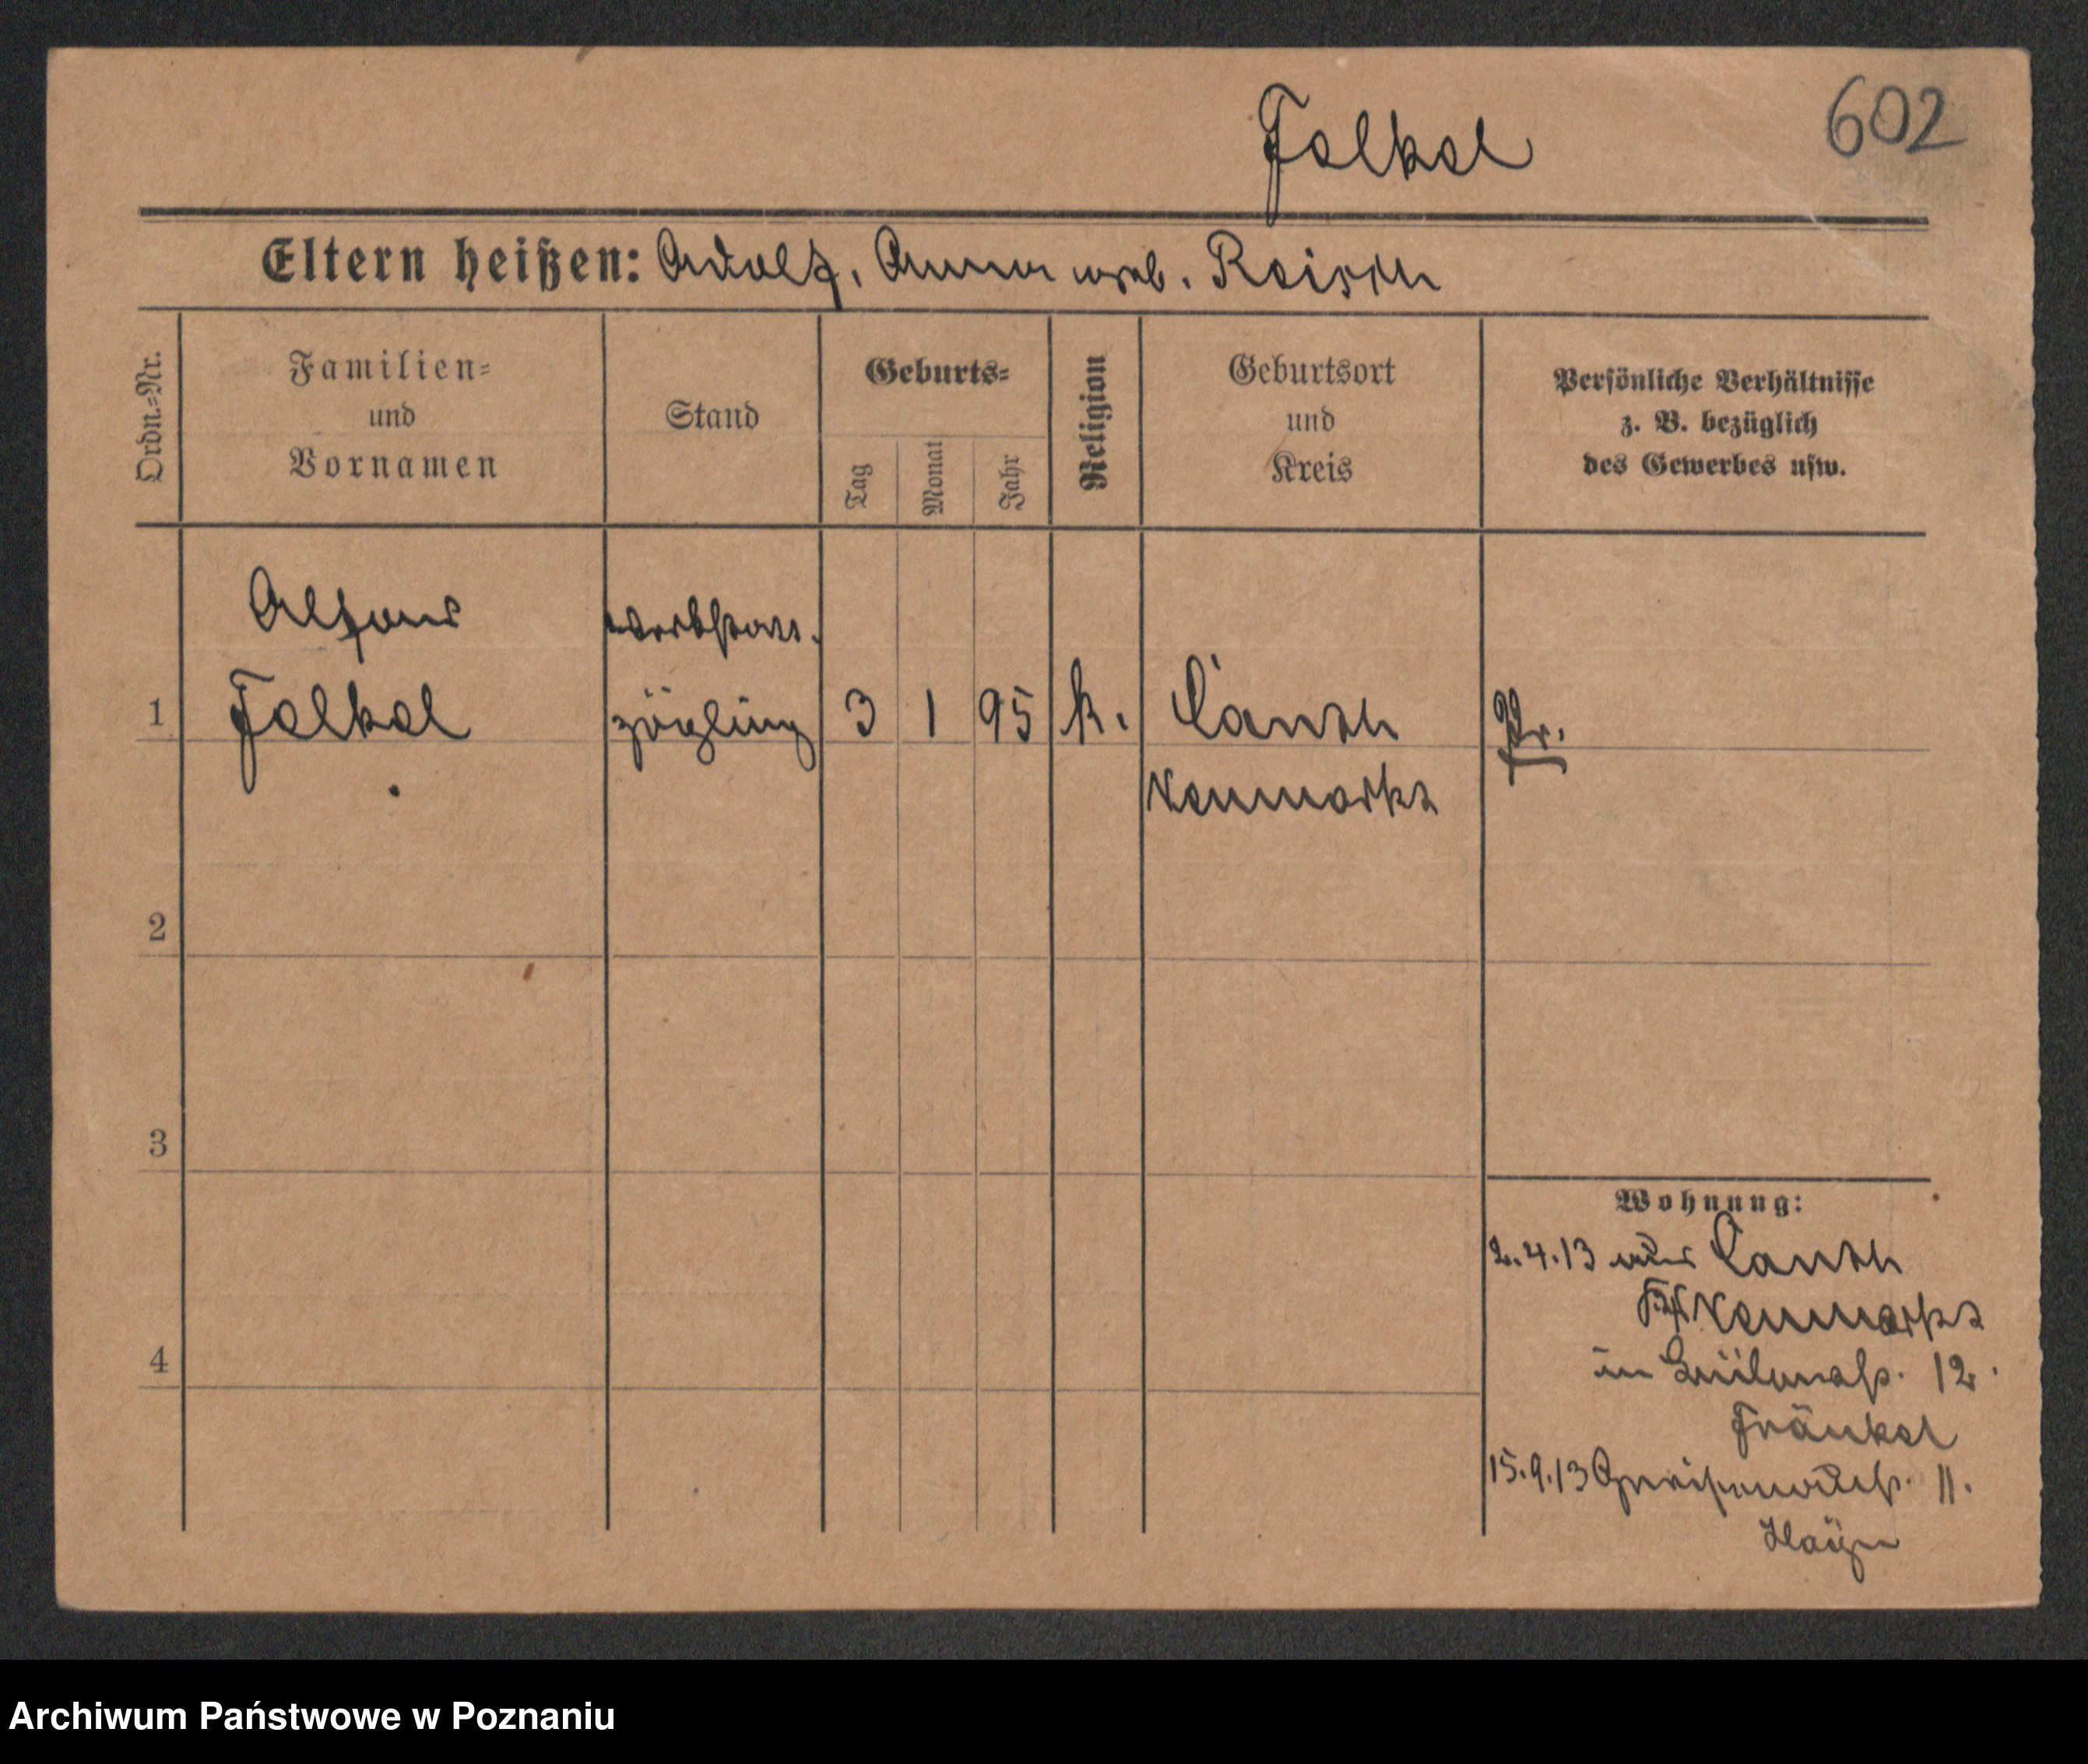 602
Falkel
Eltern heißen: Adolf, Anna geb. Reisch
Ordn.-Nr.
Familien-
und
Vornamen
Stand
Geburts-
Tag
Monat
Jahr
Religion
Geburtsort
und
Kreis
Persönliche Verhältnisse
z. B. bezüglich
des Gewerbes usw.
Alfons
1 Falkel
zögling
3 1 95 k. Canth
Neumarkt
Pr.
2
3
4
Wohnung:
2.4.13 aus Canth
Neumarkt
in 12.
Fränkel
15.9.13 Gneisenaustr. 11.
Archiwum Państwowe w Poznaniu